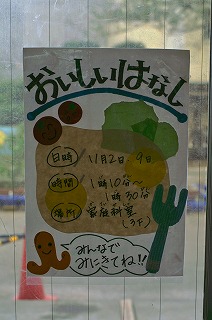 おいしいはなし
日時 11月2日・9日
時間 1時10分〜
1時30分
場所 家庭科室
(3F)
みんなで
みにきてね!!